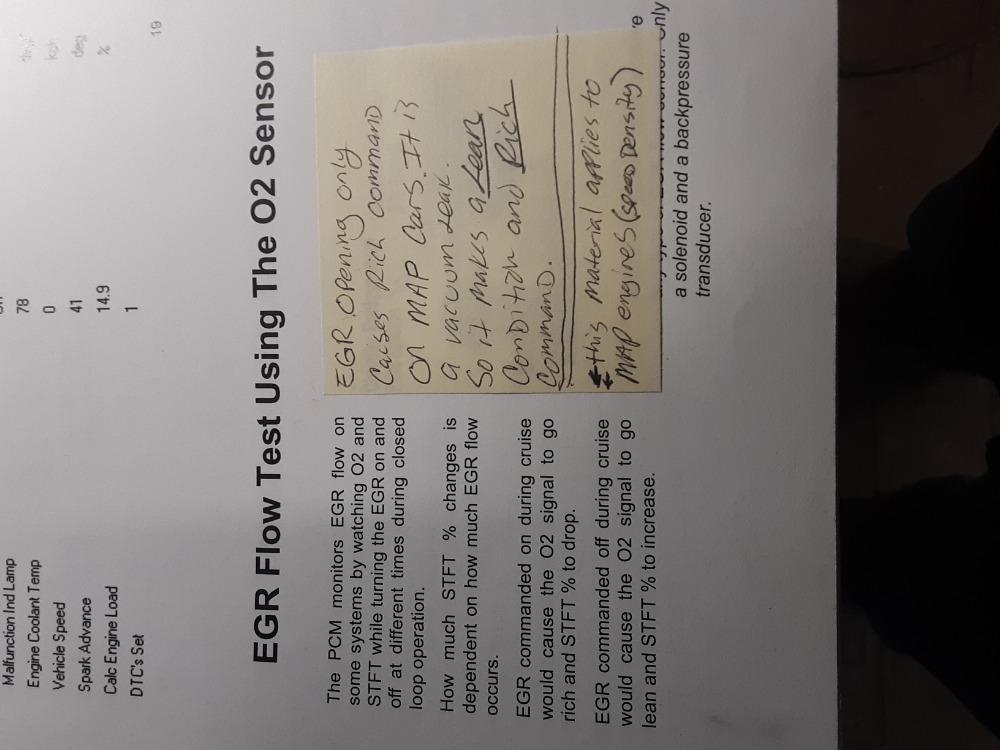 Malfunction Ind Lamp
Engine Coolant Temp 78
Vehicle Speed 0 kph
Spark Advance 41 deg
Calc Engine Load 14.9 %
DTC's Set 1
19
EGR Flow Test Using The O2 Sensor
The PCM monitors EGR flow on
some systems by watching O2 and
STFT while turning the EGR on and
off at different times during closed
loop operation.
How much STFT % changes is
dependent on how much EGR flow
occurs.
EGR commanded on during cruise
would cause the O2 signal to go
rich and STFT % to drop.
EGR commanded off during cruise
would cause the O2 signal to go
lean and STFT % to increase.
EGR opening only
Causes Rich command
on MAP Cars. It is
a vacuum leak.
So it makes a Lean
Condition and Rich
Command.
this material applies to
MAP engines (speed Density)
only
a solenoid and a backpressure
transducer.